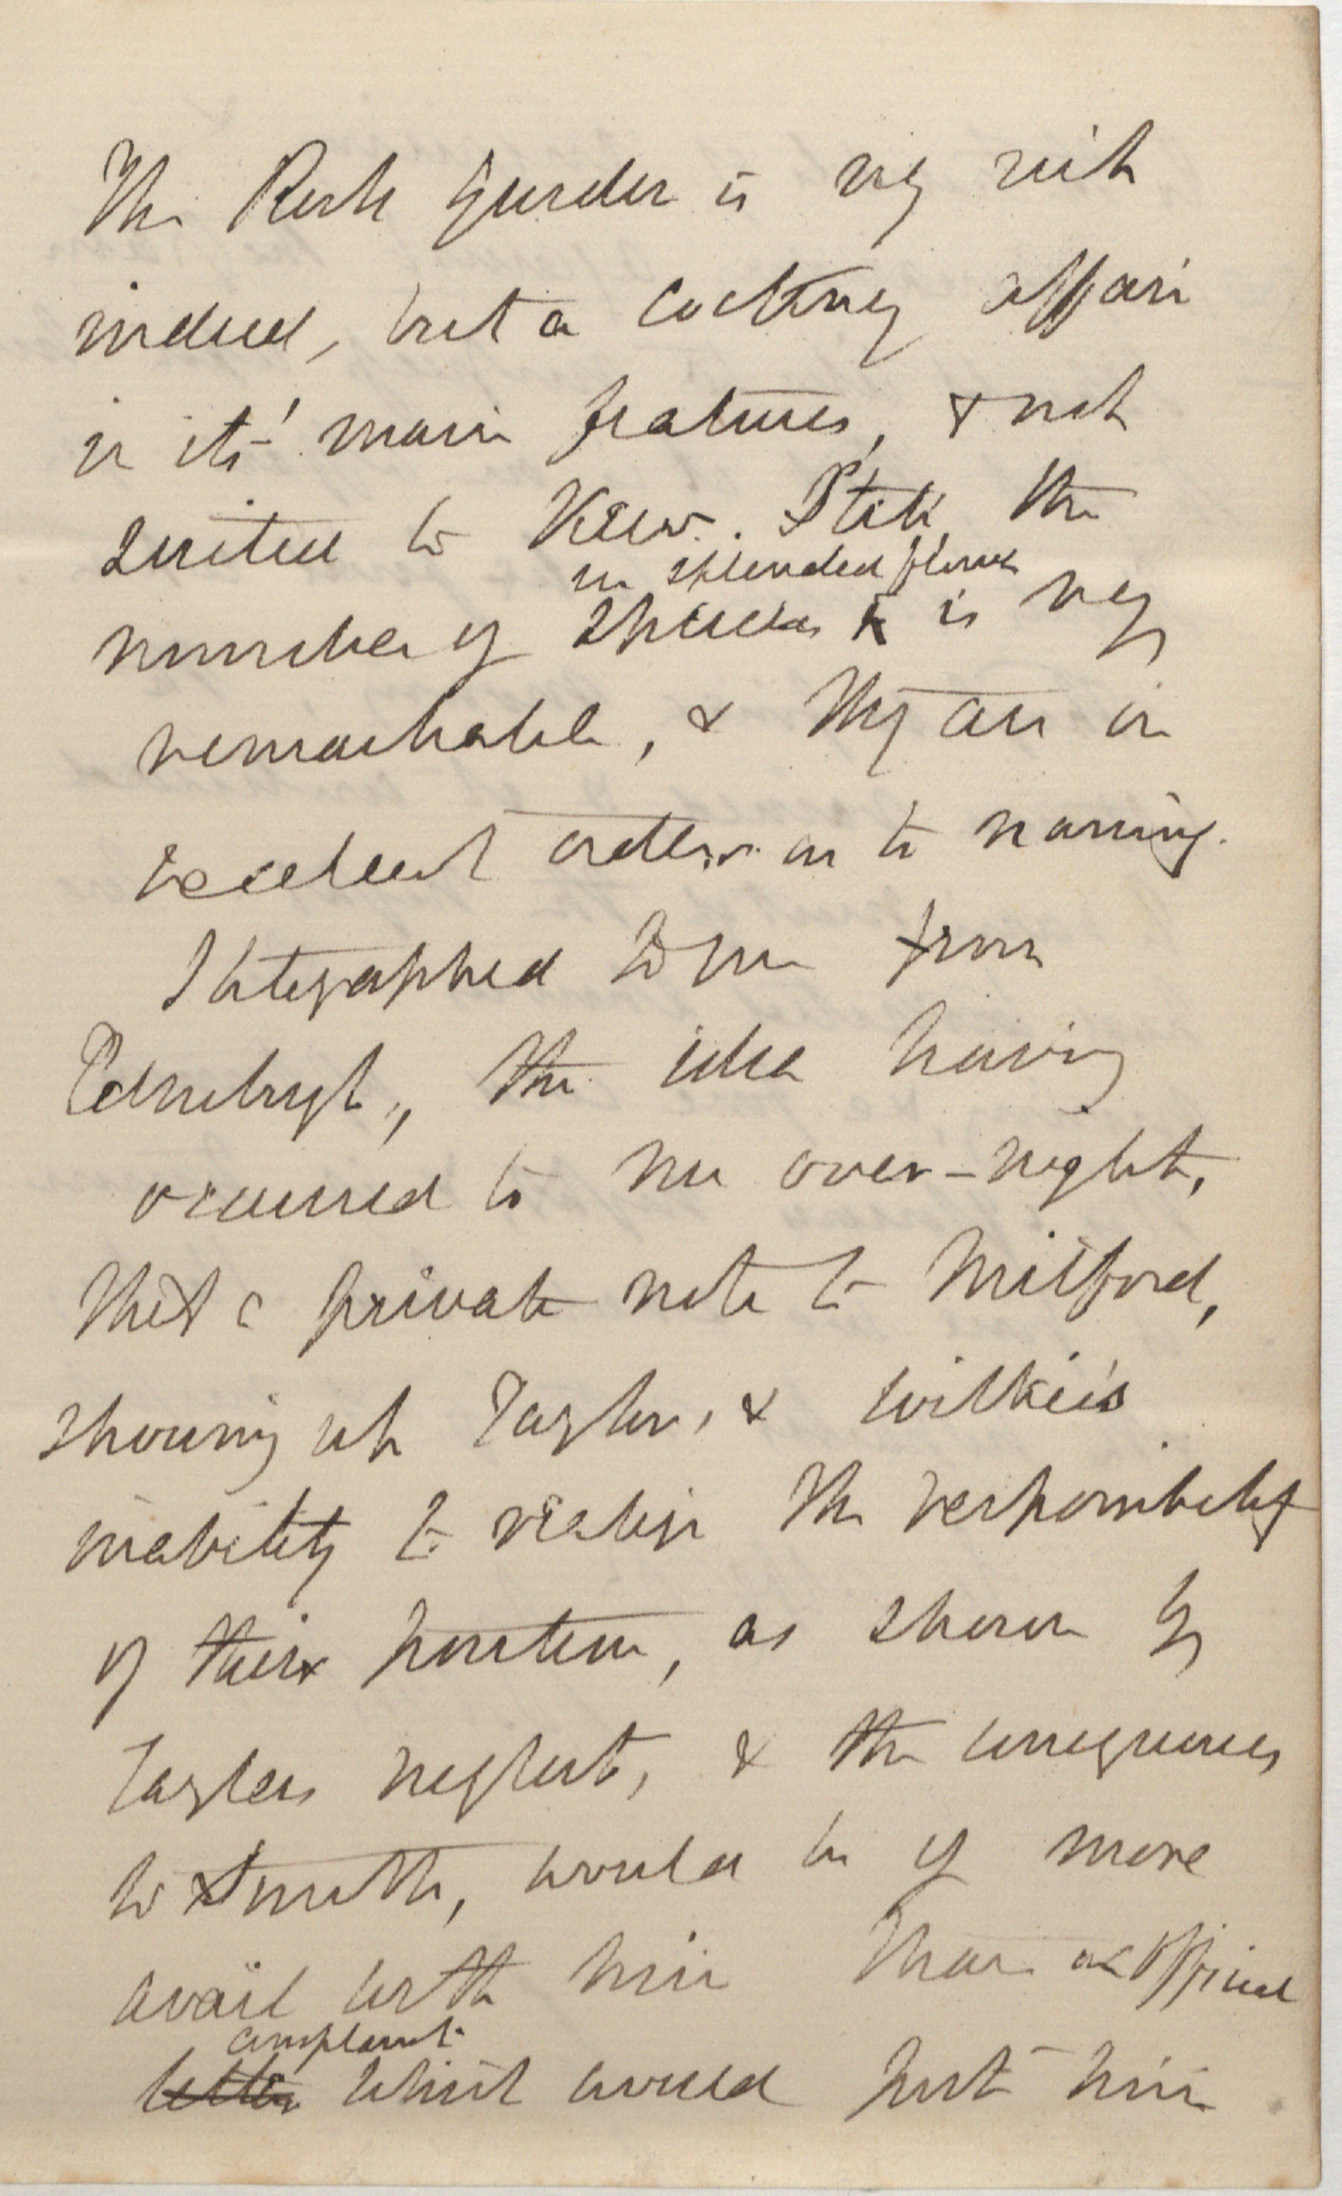 The Rock Garden is very rich
indeed, but a cockney affair
in its' main features, & not
suited to Kew. Still the
in splendid flower
number of species is very
remarkable, & they are in
excellent order as to naming.
I telegraphed to you from
Edinburgh, the idea having
occurred to me over-night,
that a private note to Mitford,
showing up Taylor, & Wilkie's
inability to realize the responsibility
of their position, as shown by
Taylers neglect, & the consequences
to Smith, would be of more
avail with him than an official
complaint
letter which would put him